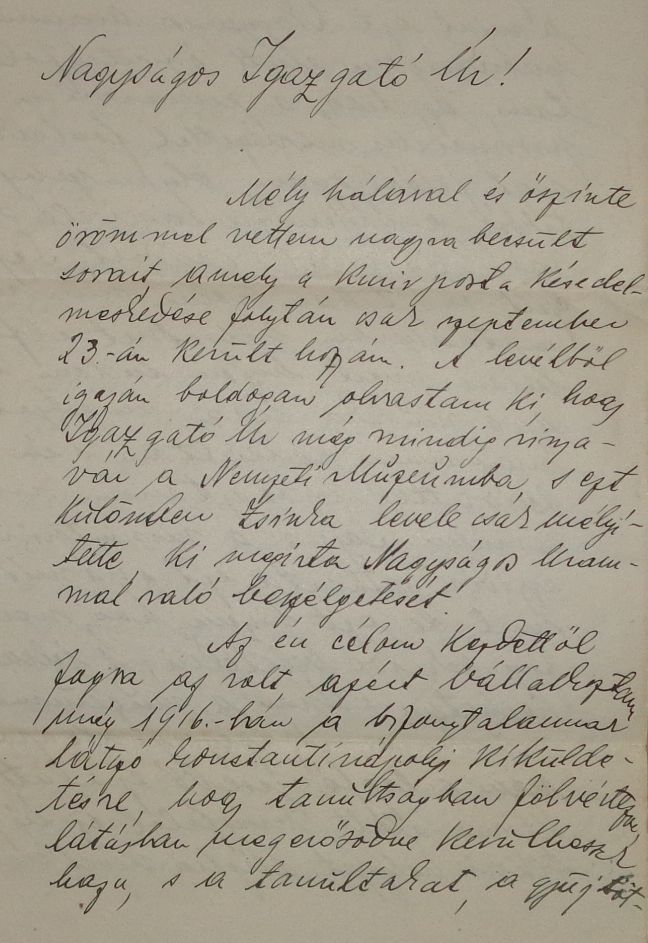 Nagyságos Igazgató Úr!
Mély hálával és őszinte
örömmel vettem nagyra becsült
sorait, amely a kurir posta késedel-
meskedése folytán csak szeptember
23.-án került hozzám. A levélből
igazán boldogan olvastam ki, hogy
Igazgató Úr még mindig vissza-
vár a Nemzeti Múzeumba, s ezt
különben Zsinka levele csak mélyí-
tette, ki megírta Nagyságos Uram-
mal való beszélgetését.
Az én célom kezdettől
fogva az volt, azért vállalkoztam
még 1916.-ban a bizonytalannak
látszó konstantinápolyi kikülde-
tésre, hogy tanultságban fölvértezve,
látásban megerősödve kerülhessek
haza, s a tanultakat, a gyűjtöt-